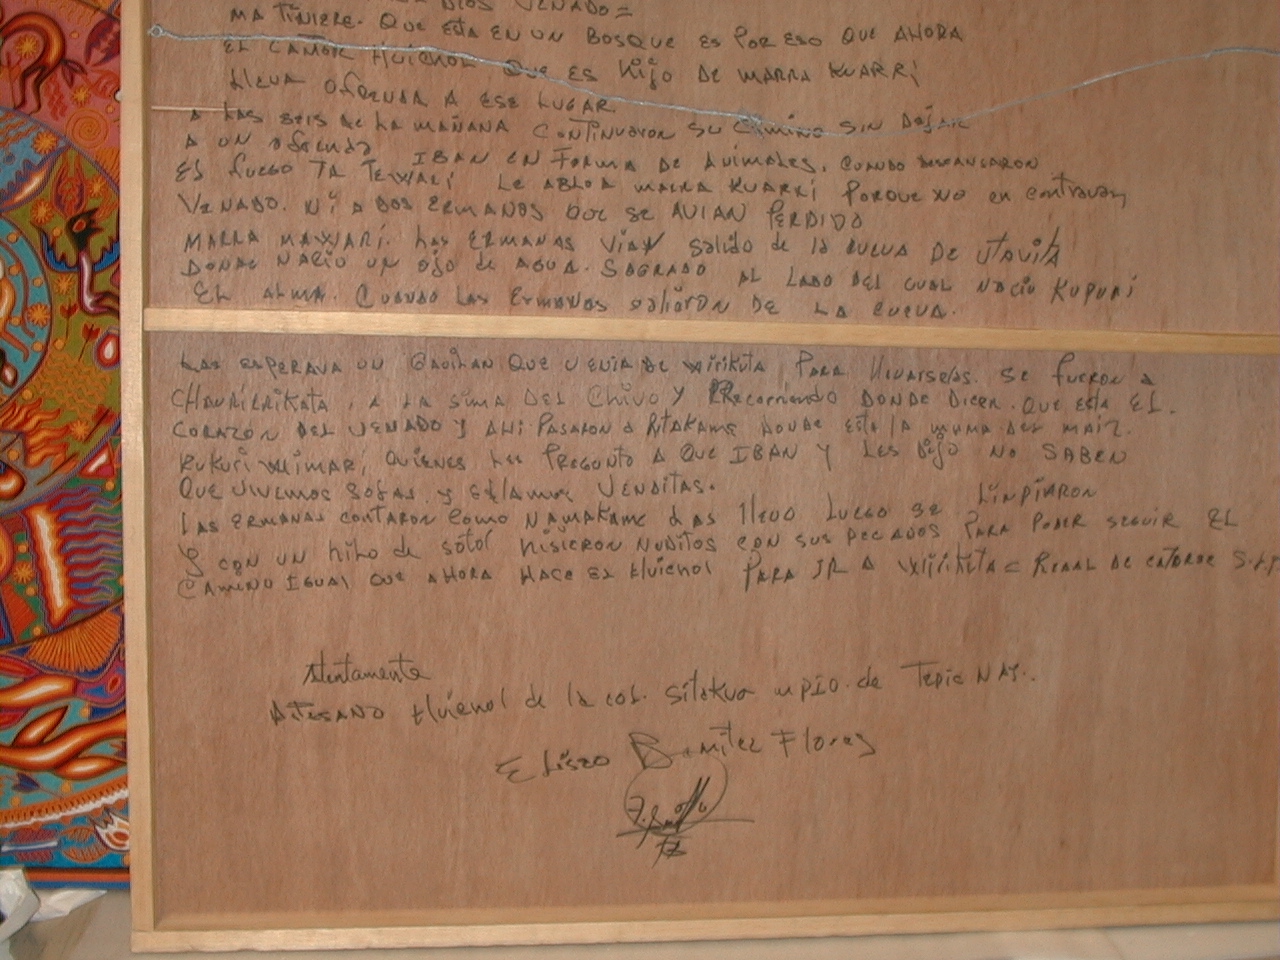 DIOS VENADO =
MA TINIERE. QUE ESTA EN UN BOSQUE ES POR ESO QUE AHORA
EL HUICHOL QUE ES HIJO DE MARRA KUARRI
LLEVA OFRENDA A ESE LUGAR
A LAS SEIS DE LA MAÑANA CONTINUARON SU CAMINO SIN DEJAR
A UN IBAN EN FORMA DE ANIMALES. CUANDO DESCANSARON
EL FUEGO TA TEWALI LE ABLO A MARRA KUARRI PORQUE NO EN CONTRAVAN
VENADO. NI A DOS ERMANOS QUE SE AVIAN PERDIDO
MARRA MAWARI. LAS ERMANAS VIAN SALIDO DE LA CUEVA DE
DONDE NACIO UN OJO DE AGUA. SAGRADO AL LADO DEL CUAL NACIO KUPURI
EL ALMA. CUANDO LAS ERMANAS SALIERON DE LA CUEVA.
LAS ESPERAVA UN GAVILAN QUE VENIA DE WIRIKUTA PARA LLEVARSELAS. SE FUERON A
CHAURIRRIKATA, A LA SIMA DEL CHIVO Y RECORRIENDO DONDE DICEN. QUE ESTA EL.
CORAZON DEL VENADO Y AHI PASARON A RITAKAME DONDE ESTA LA MAMA DEL MAIZ.
KUKURI WIMARI, QUIENES LES PREGUNTO A QUE IBAN Y LES DIJO NO SABEN
QUE VIVIMOS SOLAS. Y ESTAMOS VENDITAS.
LAS ERMANAS CONTARON COMO NAMAKAME LAS LLEVO LUEGO SE LINPIARON
Y CON UN HILO DE SOTOL HISIERON NUDITOS CON SUS PECADOS PARA PODER SEGUIR EL
CAMINO IGUAL QUE AHORA HACE EL HUICHOL PARA IR A WIRIKUTA = REAAL DE CATORSE S.L.P.
Atentamente
ARTESANO Huichol de la col. Sitakua mpio. de Tepic NAY.
Eliseo Benitez Flores